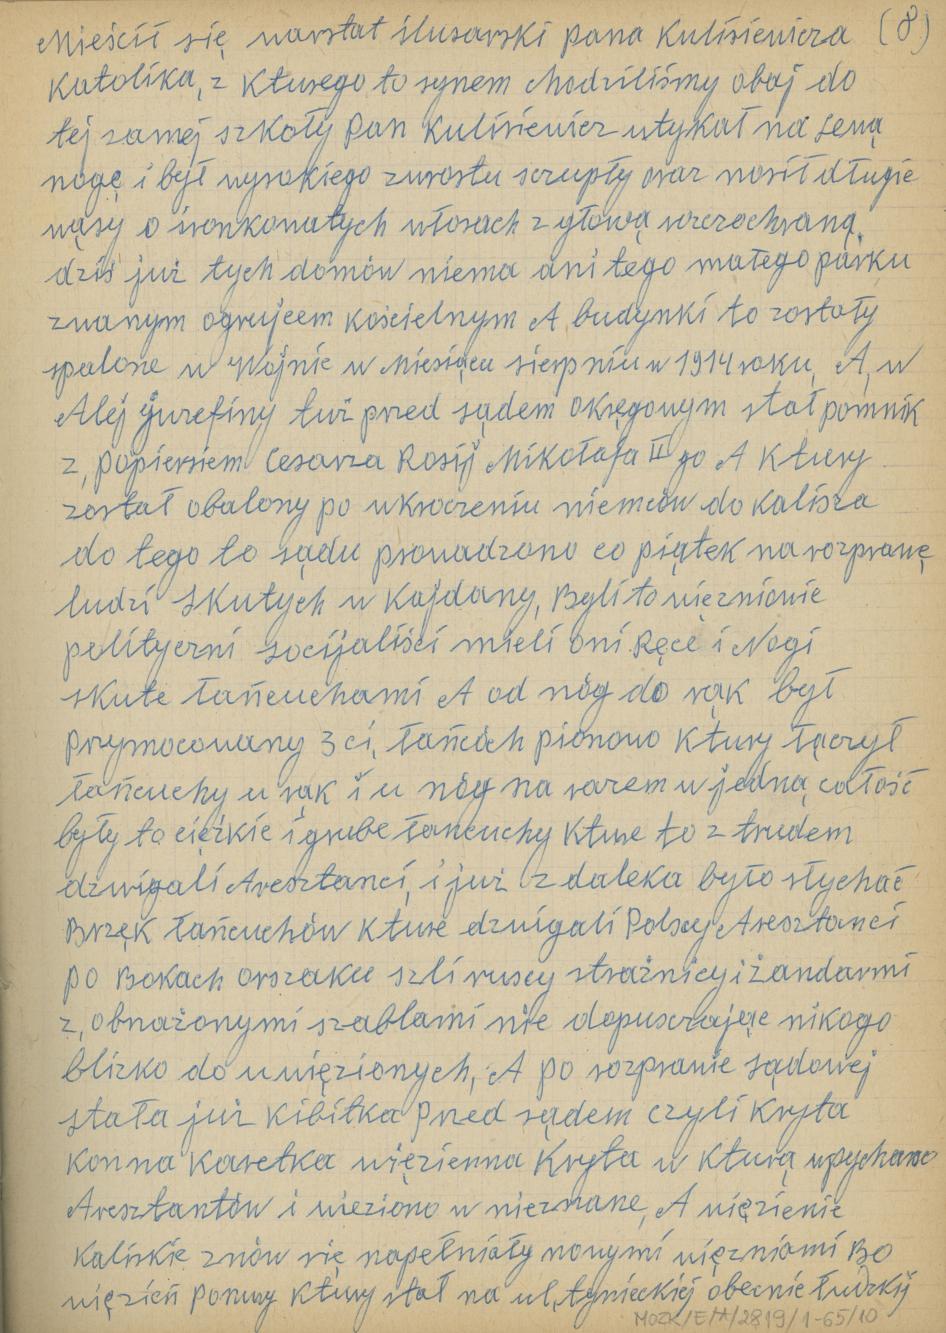 (8)
Mieścił się warstat ślusarski pana Kulisiewicza
Katolika, z kturego to synem chodziliśmy obaj do
tej samej szkoły Pan Kulisiewicz utykał na Lewą
nogę i był wysokiego zwrostu sczupły oraz nosił długie
wąsy o włosach z głową rozczochraną.
dziś już tych domów niema ani tego małego parku
zwanym ogrujcem kościelnym A budynki to zostały
spalone w Wojnie w Miesiącu sierpniu w 1914 roku, A, w
Alej Juzefiny tuż przed sądem okręgowym stał pomnik
z, popiersiem Cesarza Rosij Mikołaja II go A ktury
został obalony po wkroczeniu niemców do Kalisza
do tego to sądu prowadzono co piątek na rozprawę
ludzi skutych w Kajdany, Byli to więzniowie
polityczni socijaliści mieli oni Ręce i Nogi
skute łańcuchami A od nóg do rąk był
przymocowany 3 ci, łańcóch pionowo ktury łączył
łańcuchy u rąk i u nóg na razem w jedną całość
były to ciężkie i grube łańcuchy kture to z trudem
dzwigali Aresztanci, i już z daleka było słychać
Brzęk łańcuchów kture dzwigali Polscy Aresztanci
po Bokach orszaku szli ruscy strażnicy i żandarmi
z, obnażonymi szablami nie dopusczając nikogo
blizko do uwięzionych, A po rozprawie sądowej
stała już kibitka przed sądem czyli kryta
konna karetka więzienna kryta w kturą wpychano
Aresztantów i wieziono w nieznane, A więzienie
Kaliskie znów się napełniały nowymi więzniami Bo
więzień ponury ktury stał na ul, tynieckiej obecnie łudzkij
MOZK/E/A/2819/1-65/10